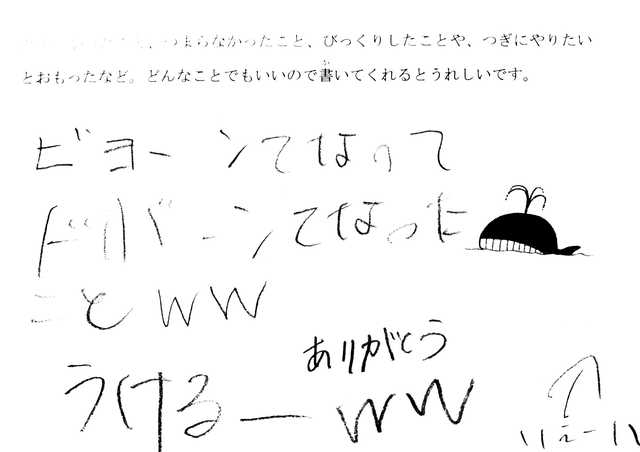 つまらなかったこと、びっくりしたことや、つぎにやりたい
とおもったなど。どんなことでもいいので書いてくれるとうれしいです。
か
ビヨーンてなって
ドバーンてなった
ことww
ありがとう
うけるーww
いえーい